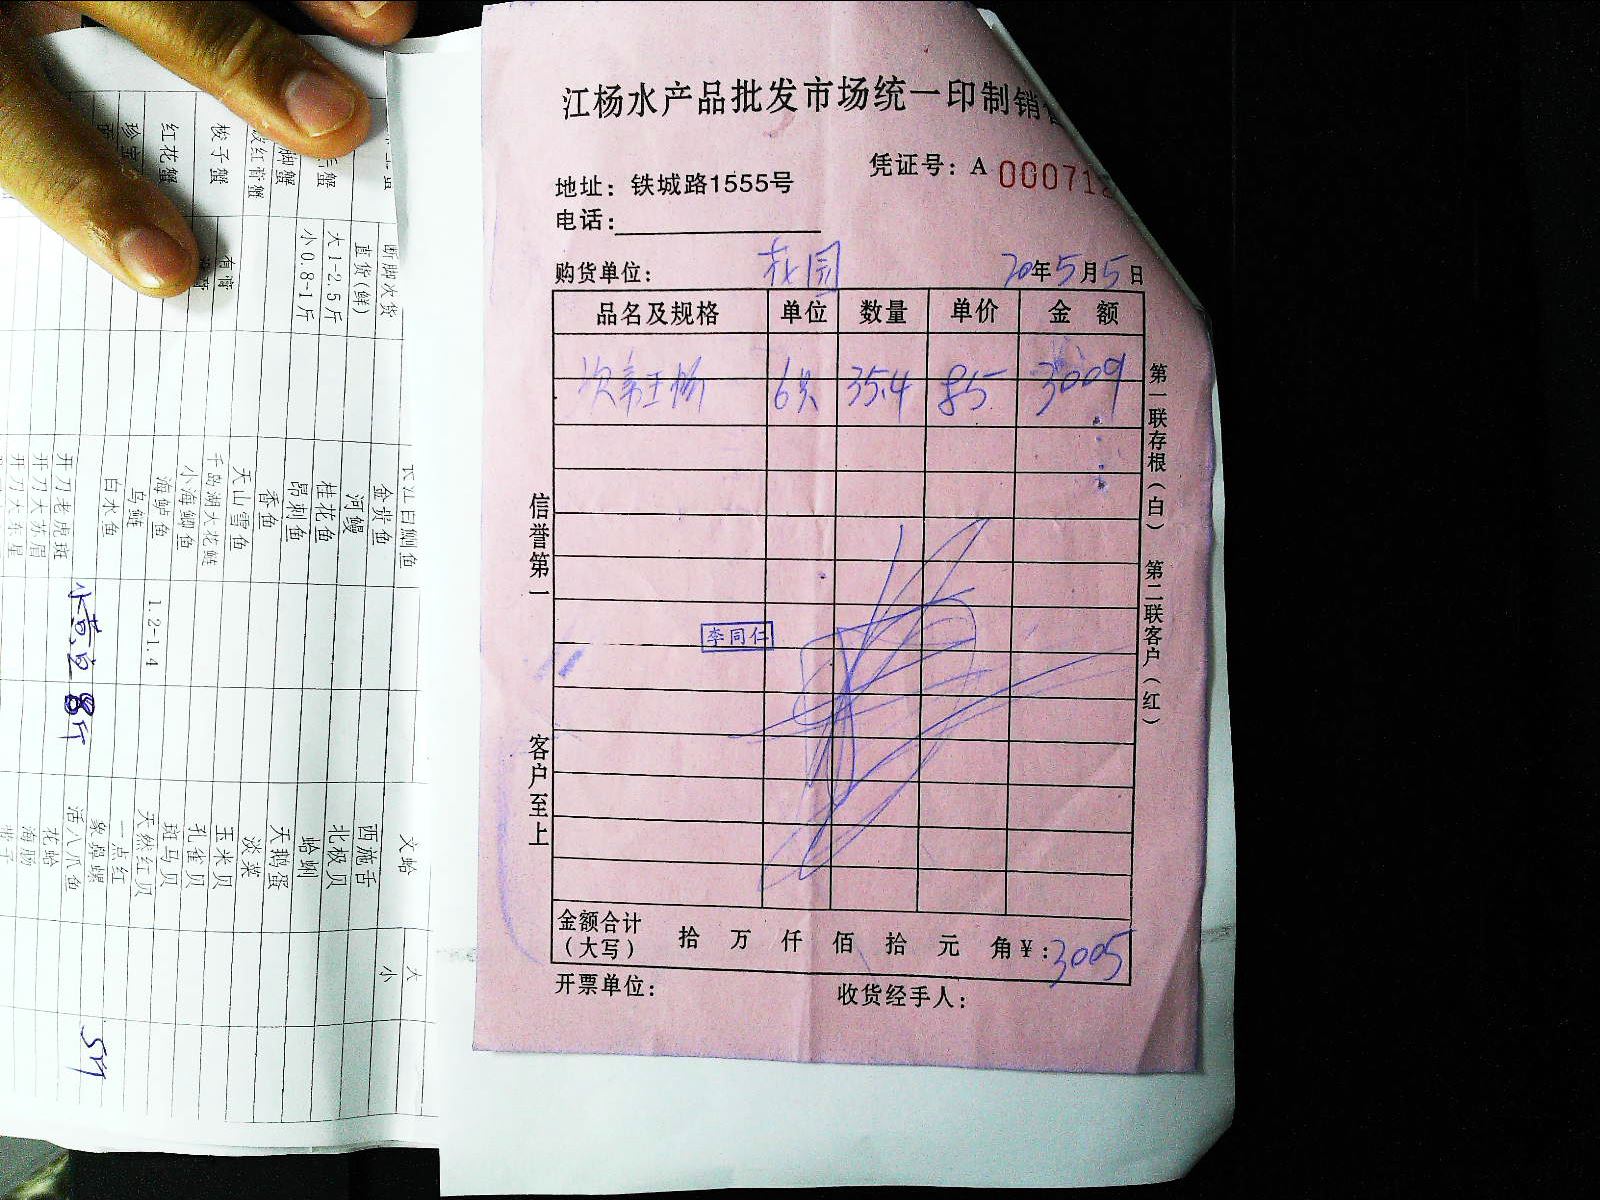 江杨水产品批发市场统一印制销
凭证号：A 000712
地址：铁城路1555号
电话：
购货单位： 花园 20年5月5日
品名及规格 单位 数量 单价 金 额
6只 35.4 85 3009
第一联存根（白） 第二联客户（红）
信誉第一 客户至上
李同仁
金额合计（大写） 拾 万 仟 佰 拾 元 角 ¥：3005
开票单位： 收货经手人：
断脚次货
直货(鲜)
大1-2.5斤
小0.8-1斤
梭子蟹
有膏
红花蟹
珍宝
金贵鱼
河鳗
桂花鱼
昂刺鱼
香鱼
天山雪鱼
千岛湖大花鲢
小海鲫鱼
海鲈鱼 1.2-1.4
乌鲢
白水鱼
开刀老虎斑
开刀大苏眉
开刀大东星
8斤
文蛤 大
西施舌 小
北极贝
蛤蜊
天鹅蛋
淡菜
玉米贝
孔雀贝
斑马贝
天然红贝
一点红
象鼻螺 5斤
活八爪鱼
花蛤
海肠